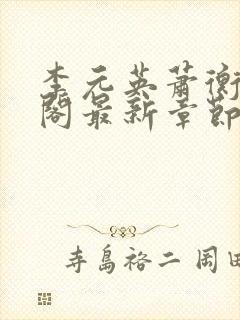 李元英萧衡
阁最新章節
寺島裕二 岡田